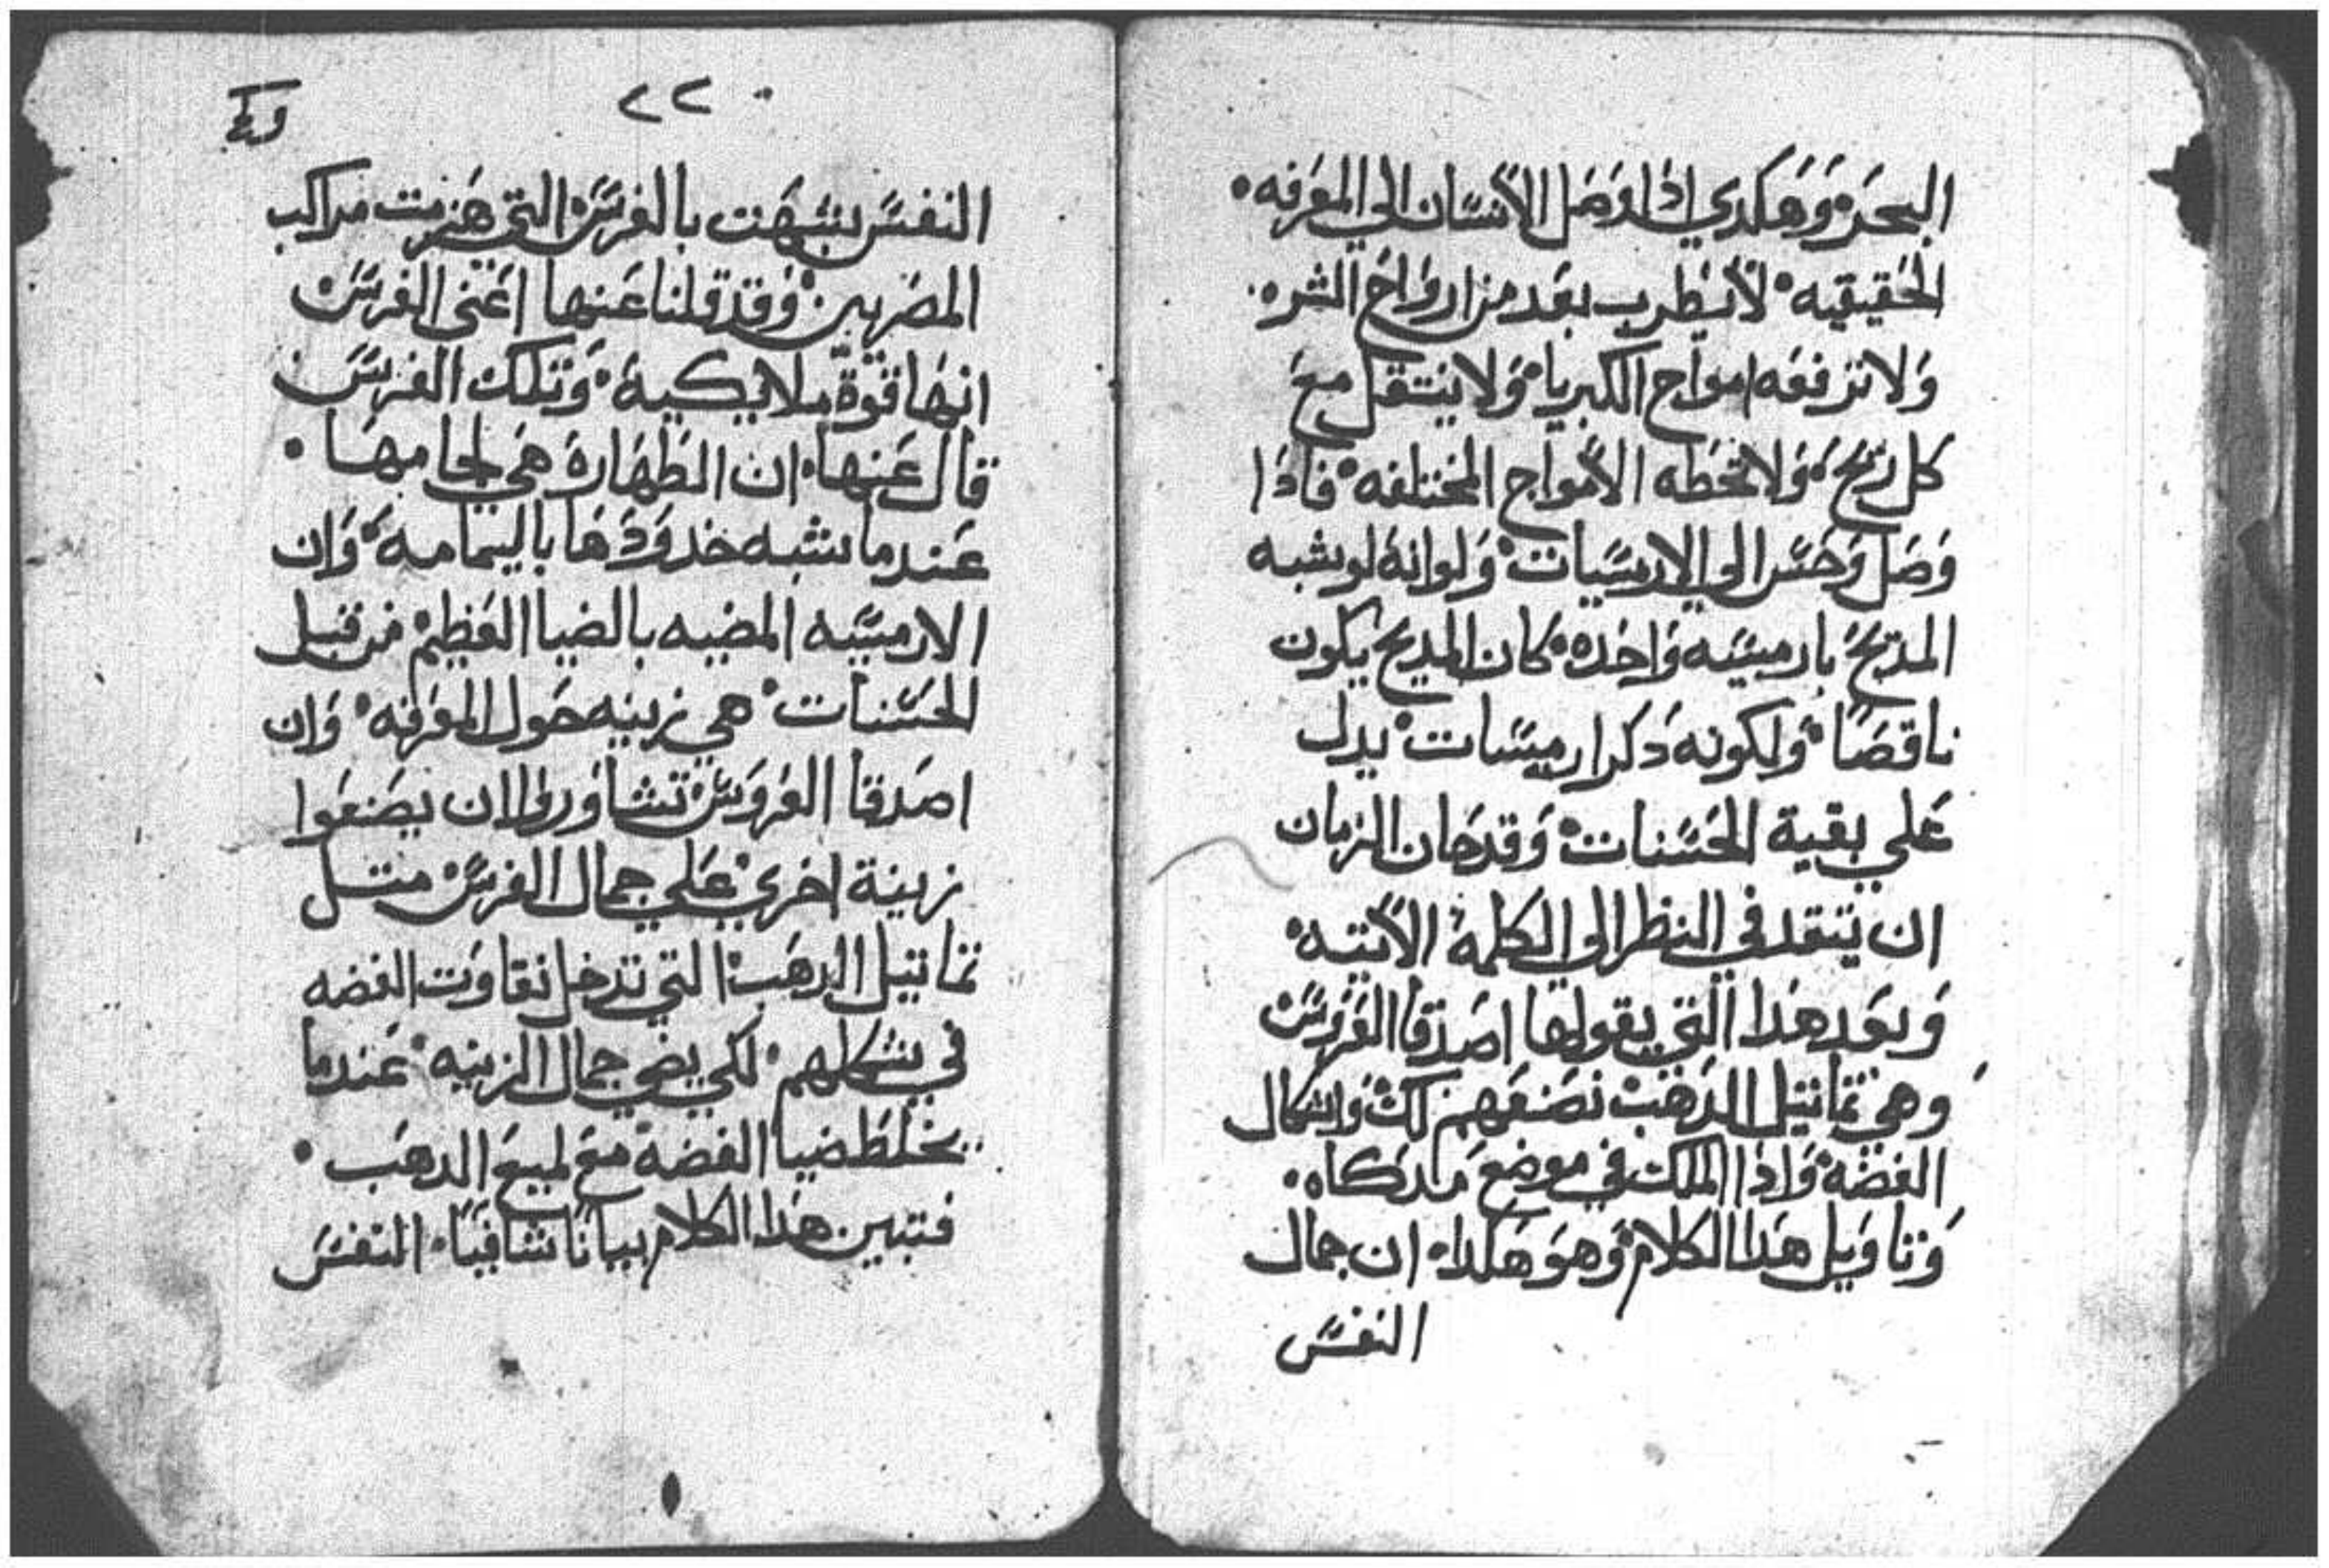 البحر وهكدي اذا وصل الأنسان الي المعرفه
الحقيقيه لأيضطرب بعد من ارواح الشره
ولا ترفعه امواج الكبريا ولا ينتقل مع
كل ريح ولا تحطه الأمواج المختلفه فاذا
وصل وحسر الي الارميسيات ولو انه لو يشبه
المديح بارميسيه واحده كان المديح يكون
ناقصا ولكونه دكر ارميسيات يدل
علي بقية الحسنات وقد حان الزمان
ان يتقد في النظر الي الكلمة الأتيه
وبعد هدا التي يقولها اصدقا العروس
وهي تماتيل الدهب نصنعهم لك واشكال
الفضه واذا الملك في موضع
وتاويل هدا الكلام وهو هكدا ان جمال
النفس
٢٢
النفس شبهت بالفرس التي هزمت مراكب
المصريين وقد قلنا عنها اعني الفرس
انها قوة ملايكية وتلك الفرس
قال عنها ان الطهارة هي لجامها
عندما شبه خدودها باليمامه وان
الارميسيه المضيه بالضيا العظيم من قبل
الحسنات هي زينه حول المعرفه وان
اصدقا العروس تشاوروا ان يصنعوا
زينة اخري علي جمال الفرس متل
تماتيل الدهب التي تدخل نقاوت الفضه
في شكلهم لكي يضي جمال الزينه عندما
يخلط ضيا الفضة مع لميع الدهب
فتبين هدا الكلام بيانا شافيا النفس